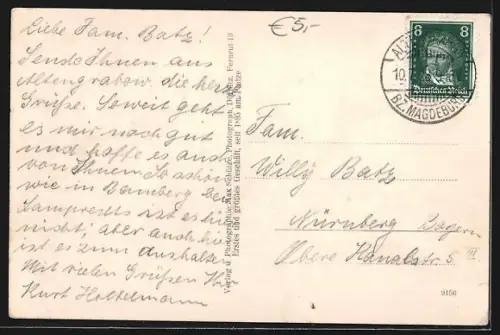 €5,-
Liebe Fam. Batz!
Sende Ihnen aus
Altengrabow die herz.
Grüße. Soweit geht
es mir noch gut
und hoffe es auch
von Ihnen. So schön
wie in Bamberg bei
Lamprechts ist es hier
nicht, aber auch hier
ist es zum aushalten.
Mit vielen Grüßen Ihr
Kurt Hottelmann
Verlag u. Photographie: Max Schulze, Photograph, Fernruf 19
Erstes und größtes Geschäft, seit 1895 am Platze
8 8
Deutsches Reich
10.
BZ. MAGDEBURG
Fam.
Willy Batz
Nürnberg
Obere Kanalstr. 5 III
9156